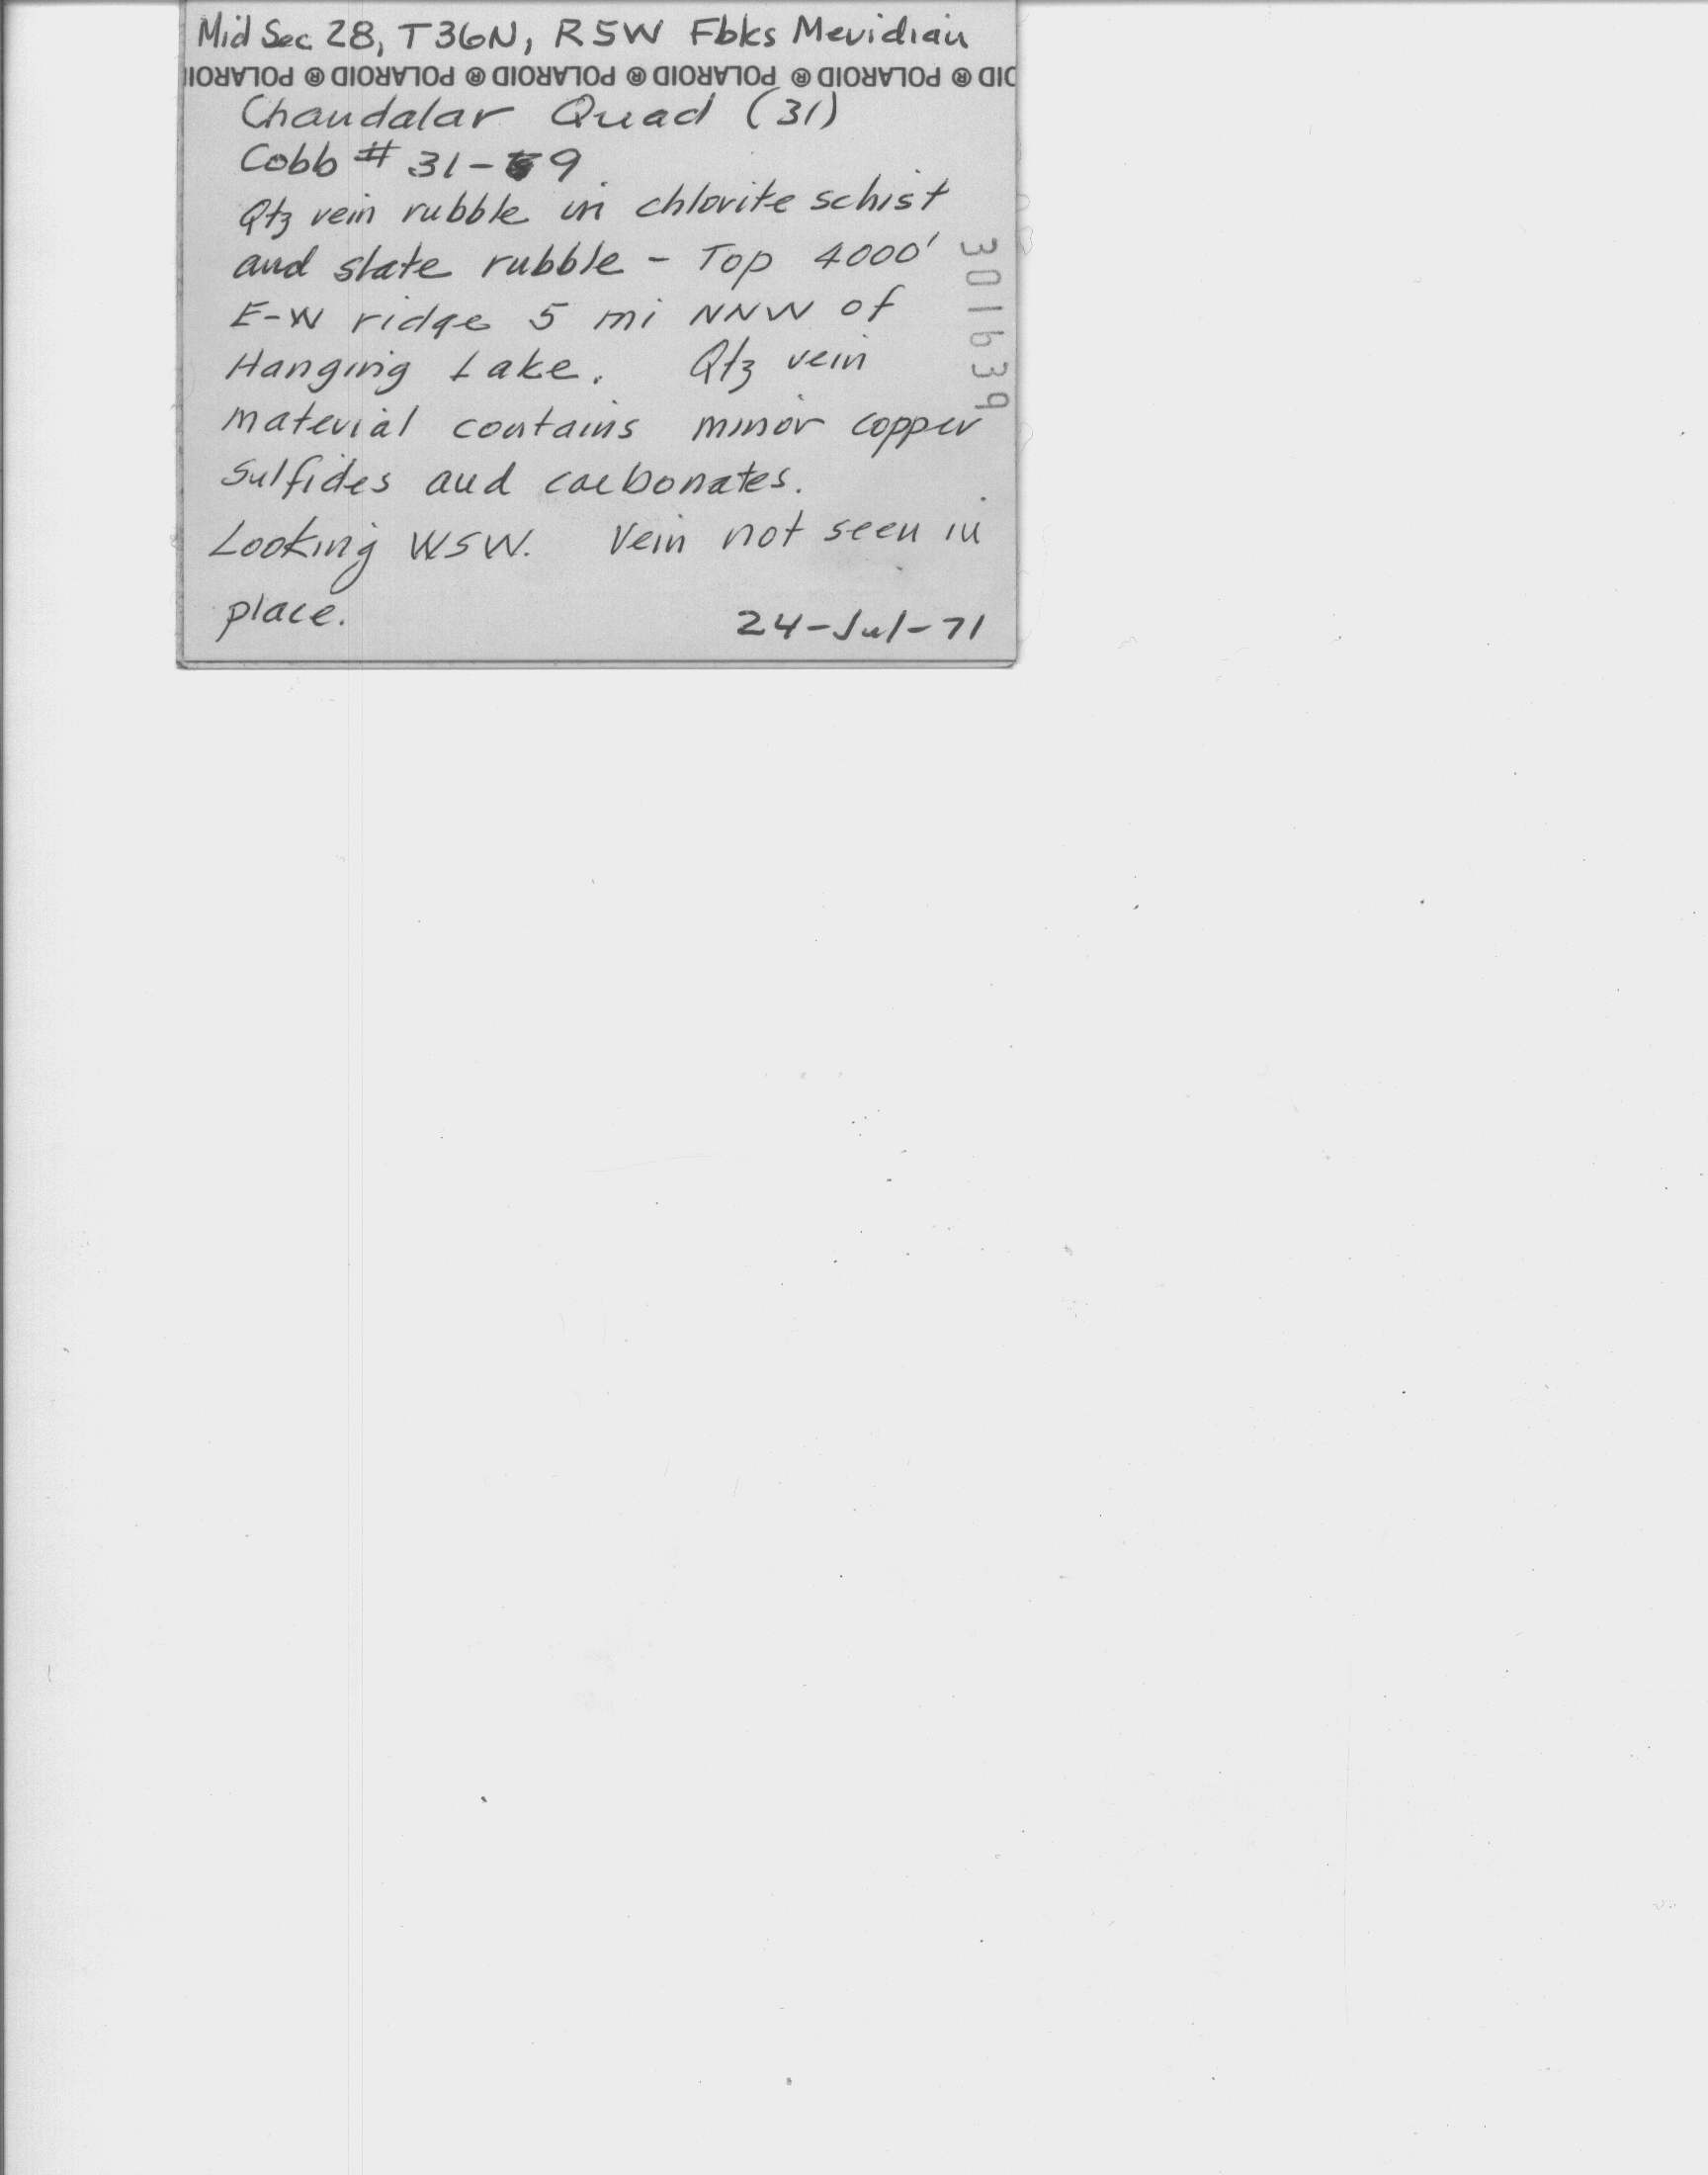 Mid Sec 28, T36N, R5W Fbks Meridian
OID ® POLAROID ® POLAROID ® POLAROID ® POLAROID ® POLAROI
Chandalar Quad (31)
Cobb # 31-9
Qtz vein rubble in chlorite schist
and slate rubble - Top 4000'
E-W ridge 5 mi NNW of
Hanging Lake. Qtz vein
material contains minor copper
sulfides and carbonates.
Looking WSW. Vein not seen in
place. 24-Jul-71
301639